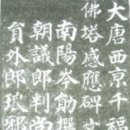 大唐西京千福
佛塔感應碑文
南陽岑勛撰
朝議郎判尚
員外郎琅邪